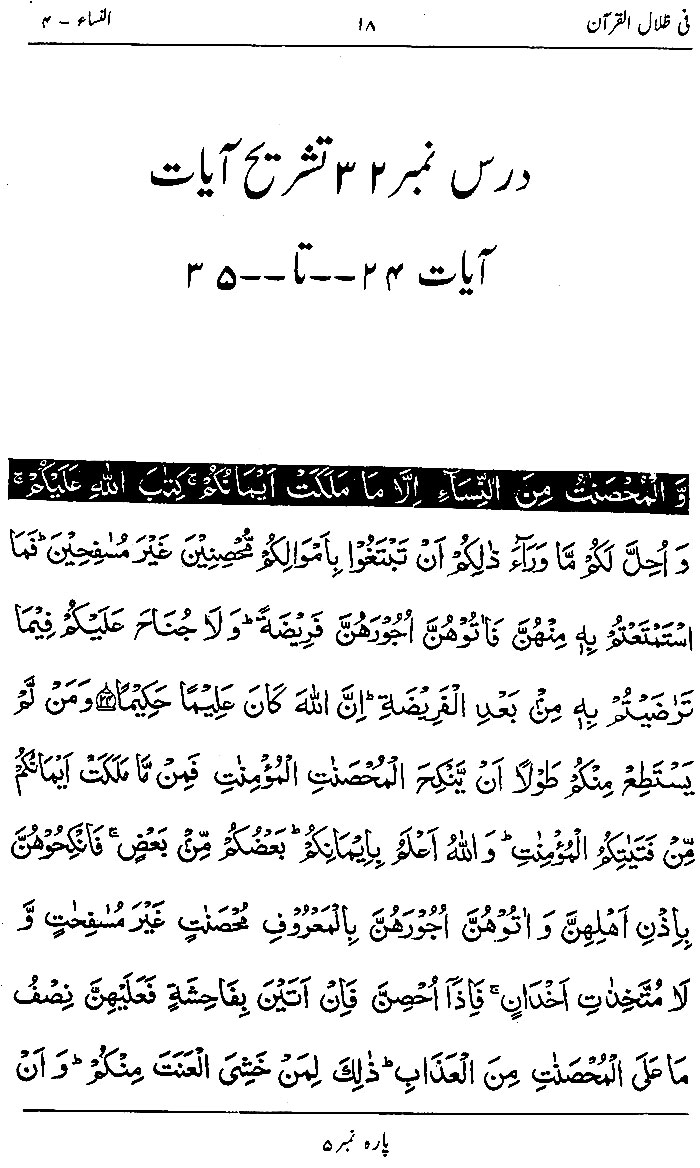 فی ظلال القرآن ۱۸ النساء - ۴
درس نمبر ۳۲ تشریح آیات
آیات ۲۴ --تا-- ۳۵
وَّ الْمُحْصَنٰتُ مِنَ النِّسَآءِ اِلَّا مَا مَلَكَتْ اَیْمَانُكُمْ ۚ كِتٰبَ اللّٰهِ عَلَیْكُمْ ۚ
وَ اُحِلَّ لَكُمْ مَّا وَرَآءَ ذٰلِكُمْ اَنْ تَبْتَغُوْا بِاَمْوَالِكُمْ مُّحْصِنِیْنَ غَیْرَ مُسٰفِحِیْنَ ؕ فَمَا
اسْتَمْتَعْتُمْ بِهٖ مِنْهُنَّ فَاٰتُوْهُنَّ اُجُوْرَهُنَّ فَرِیْضَةً ؕ وَ لَا جُنَاحَ عَلَیْكُمْ فِیْمَا
تَرٰضَیْتُمْ بِهٖ مِنْۢ بَعْدِ الْفَرِیْضَةِ ؕ اِنَّ اللّٰهَ كَانَ عَلِیْمًا حَكِیْمًا ﴿۲۴﴾ وَ مَنْ لَّمْ
یَسْتَطِعْ مِنْكُمْ طَوْلًا اَنْ یَّنْكِحَ الْمُحْصَنٰتِ الْمُؤْمِنٰتِ فَمِنْ مَّا مَلَكَتْ اَیْمَانُكُمْ
مِّنْ فَتَیٰتِكُمُ الْمُؤْمِنٰتِ ؕ وَ اللّٰهُ اَعْلَمُ بِاِیْمَانِكُمْ ؕ بَعْضُكُمْ مِّنْۢ بَعْضٍ ۚ فَانْكِحُوْهُنَّ
بِاِذْنِ اَهْلِهِنَّ وَ اٰتُوْهُنَّ اُجُوْرَهُنَّ بِالْمَعْرُوْفِ مُحْصَنٰتٍ غَیْرَ مُسٰفِحٰتٍ وَّ
لَا مُتَّخِذٰتِ اَخْدَانٍ ۚ فَاِذَاۤ اُحْصِنَّ فَاِنْ اَتَیْنَ بِفَاحِشَةٍ فَعَلَیْهِنَّ نِصْفُ
مَا عَلَی الْمُحْصَنٰتِ مِنَ الْعَذَابِ ؕ ذٰلِكَ لِمَنْ خَشِیَ الْعَنَتَ مِنْكُمْ ؕ وَ اَنْ
پارہ نمبر ۵